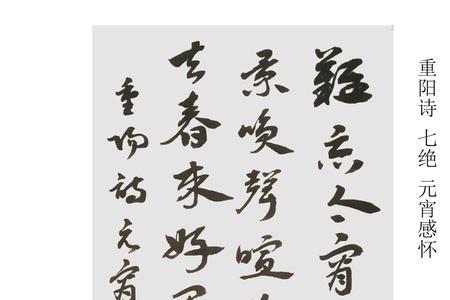 重阳诗 七绝 元宵感怀
難忘今宵
景唤聲喧
去春来好
重陽詩元宵